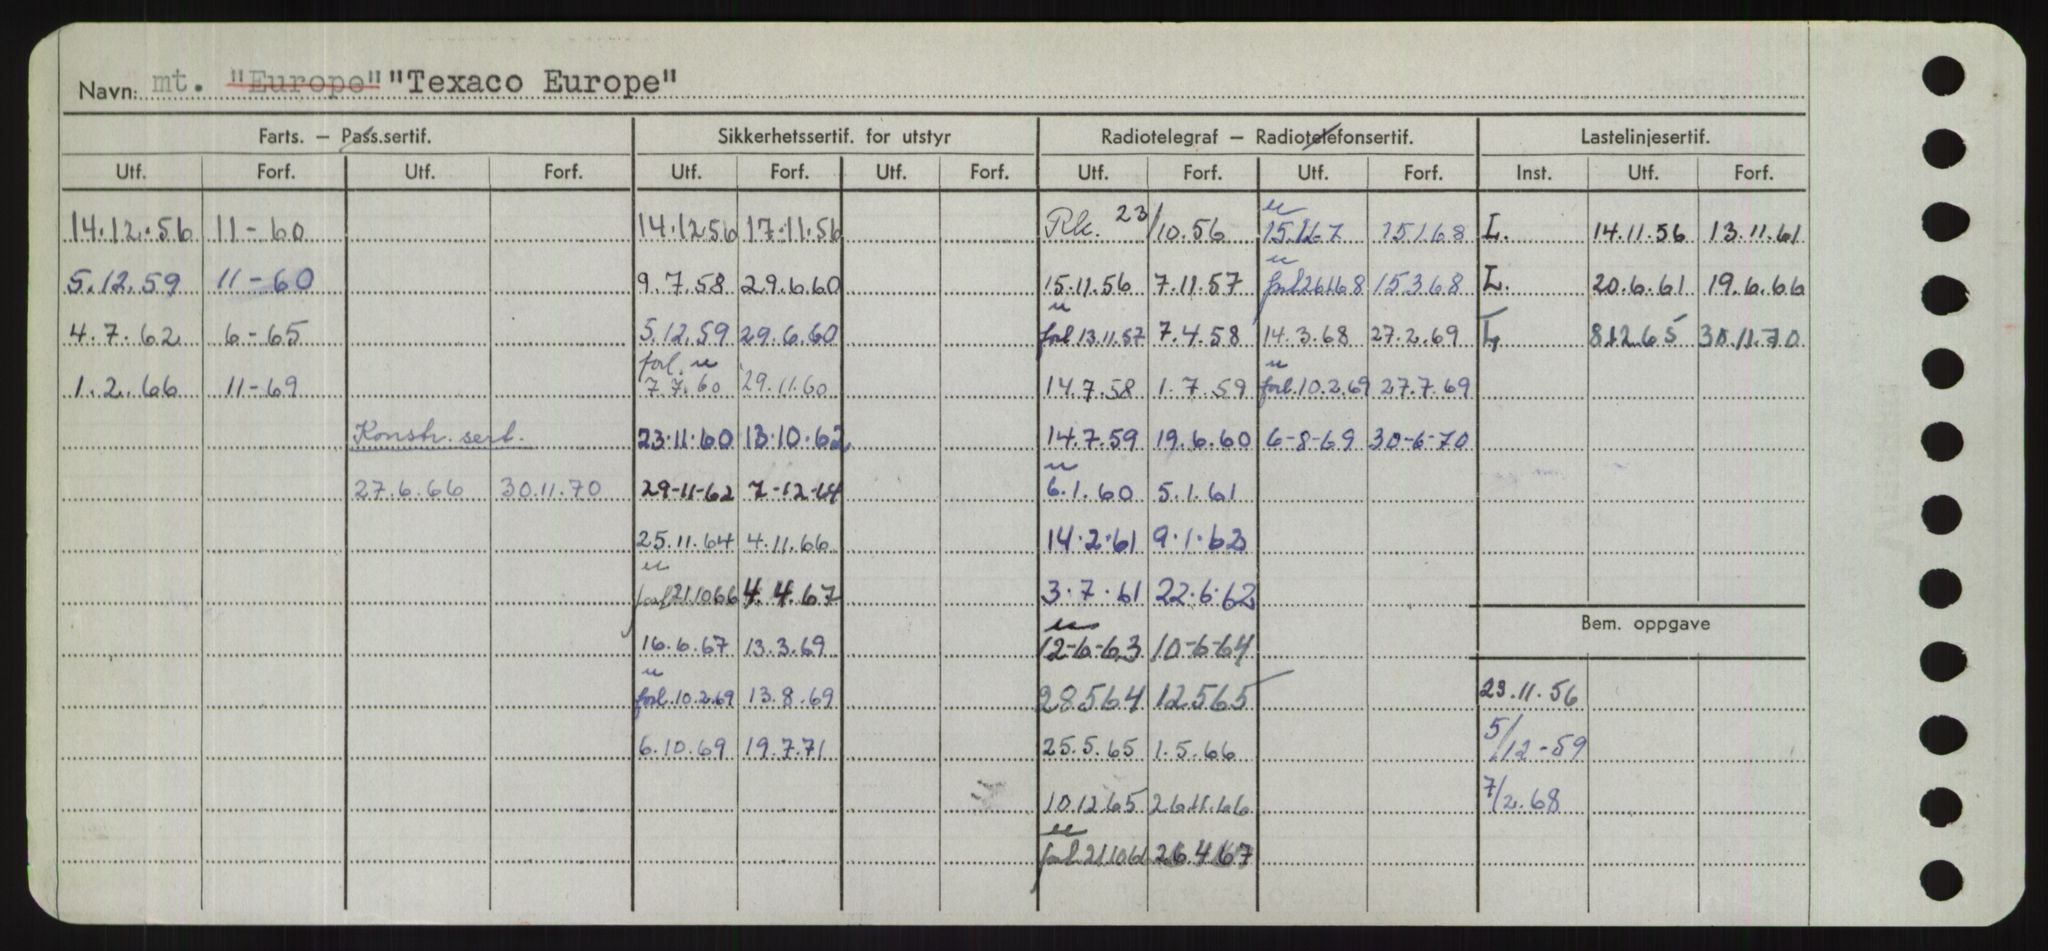 Navn: mt. "Europe" "Texaco Europe"
Farts. — Pass.sertif. Sikkerhetssertif. for utstyr Radiotelegraf — Radiotelefonsertif. Lastelinjesertif.
Utf. Forf. Utf. Forf. Utf. Forf. Utf. Forf. Utf. Forf. Utf. Forf. Inst. Utf. Forf.
14.12.56 11-60 14.12 56 17.11.56 Rk. 23/10.56 15.1.67 15.1.68 L. 14.11.56 13.11.61
5.12.59 11-60 9.7.58 29.6.60 15.11.56 7.11.57 forl 26.1.68 15.3.68 L. 20.6.61 19.6.66
4.7.62 6-65 5.12.59 29.6.60 forl 13.11.57 7.4.58 14.3.68 27.2.69 L 8.12.65 30.11.70
1.2.66 11-69 forl. 7.7.60 29.11.60 14.7.58 1.7.59 forl. 10.2.69 27.7.69
Konstr. sert. 23.11.60 13.10.62 14.7.59 19.6.60 6-8-69 30-6-70
27.6.66 30.11.70 29-11-62 7-12-64 6.1.60 5.1.61
25.11.64 4.11.66 14.2.61 9.1.62
forl 21.10 66 4.4.67 3.7.61 22.6.62
16.6.67 13.3.69 12-6-63 10-6-64 Bem. oppgave
forl. 10.2.69 13.8.69 28564 12565 23.11.56
6.10.69 19.7.71 25.5.65 1.5.66 5/12-59
10.12.65 26.11.66 7/2.68
forl. 26.4.67